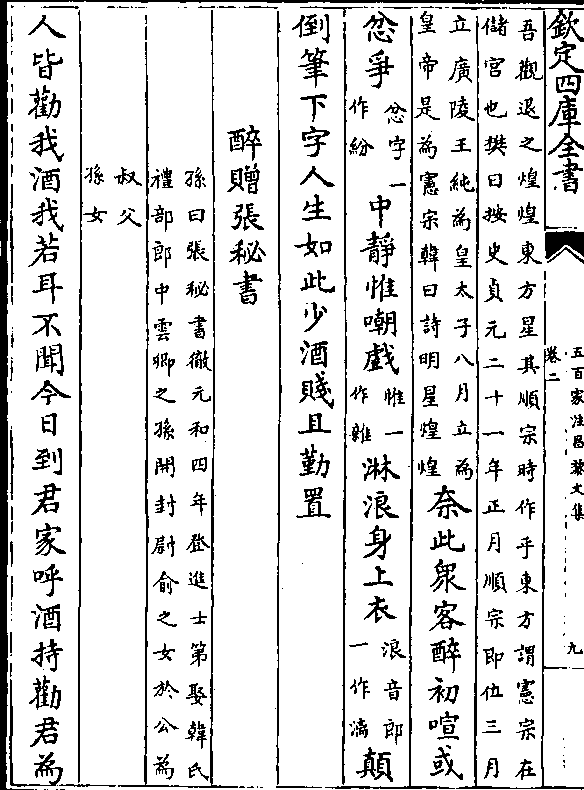 欽定四庫全書
五百家注昌黎文集
卷二
九
吾觀退之煌煌東方星其順宗時作乎東方謂憲宗在
儲宮也樊曰按史貞元二十一年正月順宗即位三月
立廣陵王純為皇太子八月立為
皇帝是為憲宗韓曰詩明星煌煌
奈此衆客醉初喧或
忿爭
忿字一
作紛
中靜惟嘲戲
惟一
作雜
淋浪身上衣
浪音郎
一作漓
顛
倒筆下字人生如此少酒賤且勤置
醉贈張秘書
孫曰張秘書徹元和四年登進士第娶韓氏
禮部郎中雲卿之孫開封尉俞之女於公為
叔父
孫女
人皆勸我酒我若耳不聞今日到君家呼酒持勸君為